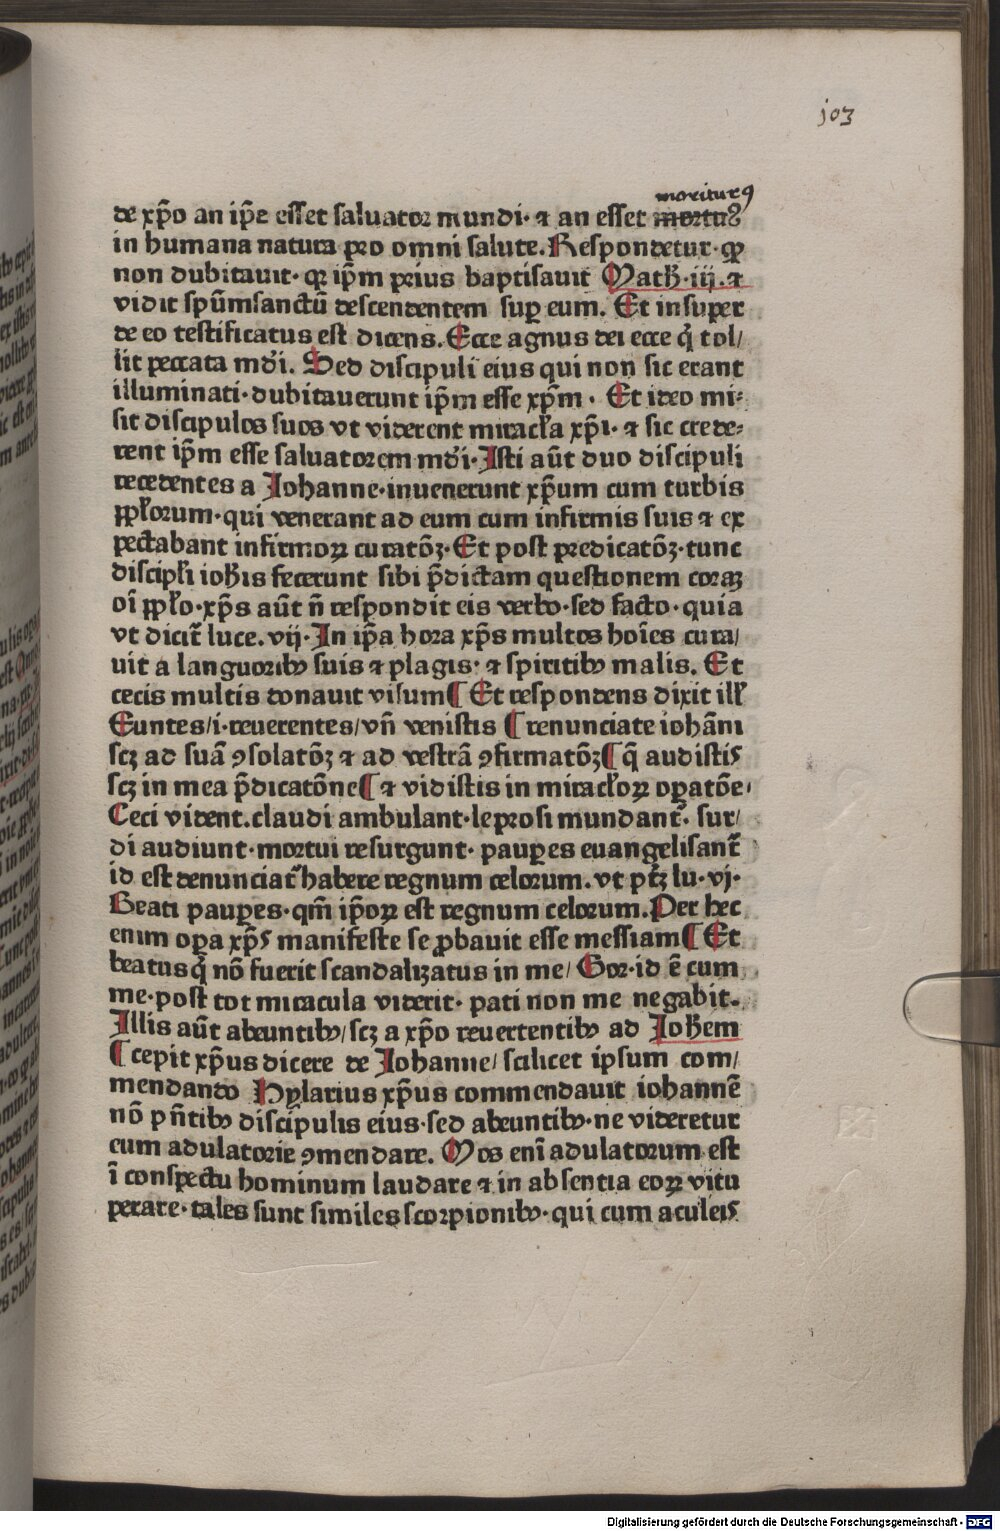 j03
moriturꝰ
de xp̄o an ip̄e esset saluator mundi· ⁊ an esset mortuꝰ
in humana natura pro omni salute. Respondetur· ꝙ
non dubitauit· qꝛ ip̄m prius baptisauit Math̄· iij· ⁊
vidit spūmsanctū descendentem suꝑ eum. Et insuper
de eo testificatus est dicens. Ecce agnus dei ecce q̄ tol/
lit peccata mōi. Sed discipuli eius qui non sic erant
illuminati· dubitauerunt ip̄m esse xp̄m · Et ideo mi⸗
sit discipulos suos vt viderent miracła xp̄i· ⁊ sic crede⸗
rent ip̄m esse saluatorem mōi· Isti aūt duo discipuli
recedentes a Johanne· inuenerunt xp̄um cum turbis
ꝓpłorum· qui venerant ad eum cum infirmis suis ⁊ ex
pectabant infirmoꝝ curatōꝫ· Et post predicatōꝫ· tunc
discipłi ioħis fecerunt sibi p̄dictam questionem coraꝫ
oī ꝓpło· xp̄s aūt n̄ respondit eis verbo· sed facto· quia
vt dicit᷑ luce. vij· In ip̄a hora xp̄s multos hoīes cura/
uit a languoribꝫ suis ⁊ plagis· ⁊ spiritibꝫ malis. Et
cecis multis donauit visum¶ Et respondens dixit ill̄
Euntes/i·reuerentes/vn̄ venistis ¶ renunciate iohāni
scꝫ ad suā ꝯsolatōꝫ ⁊ ad vestrā ꝯfirmatōꝫ¶ q̄ audistis
scꝫ in mea p̄dicatōne¶ ⁊ vidistis in miracłoꝝ oꝑatōe·
Ceci vident. claudi ambulant· leprosi mundant᷑· sur/
di audiunt· mortui resurgunt· pauꝑes euangelisant᷑
id est denunciat᷑ habere regnum celorum. vt ptꝫ lu· vj·
Beati pauꝑes· qm̄ ip̄oꝝ est regnum celorum. Per hec
enim oꝑa xp̄s manifeste se ꝓbauit esse messiam¶ Et
beatus q̄ nō fuerit scandalizatus in me/ Gor· id ē cum
me· post tot miracula viderit· pati non me negabit.
Illis aūt abeuntibꝫ/scꝫ a xp̄o reuertentibꝫ ad Joħem
¶ cepit xp̄us dicere de Johanne/ scilicet ipsum com/
mendando Hylarius xp̄us commendauit iohannē
nō pn̄tibꝫ discipulis eius· sed abeuntibꝫ· ne videretur
eum adulatorie ꝯmendare. Mos enī adulatorum est
ī conspectu hominum laudare ⁊ in absentia eoꝝ vitu
perare· tales sunt similes scorpionibꝫ· qui cum aculeis
Digitalisierung gefördert durch die Deutsche Forschungsgemeinschaft - DFG